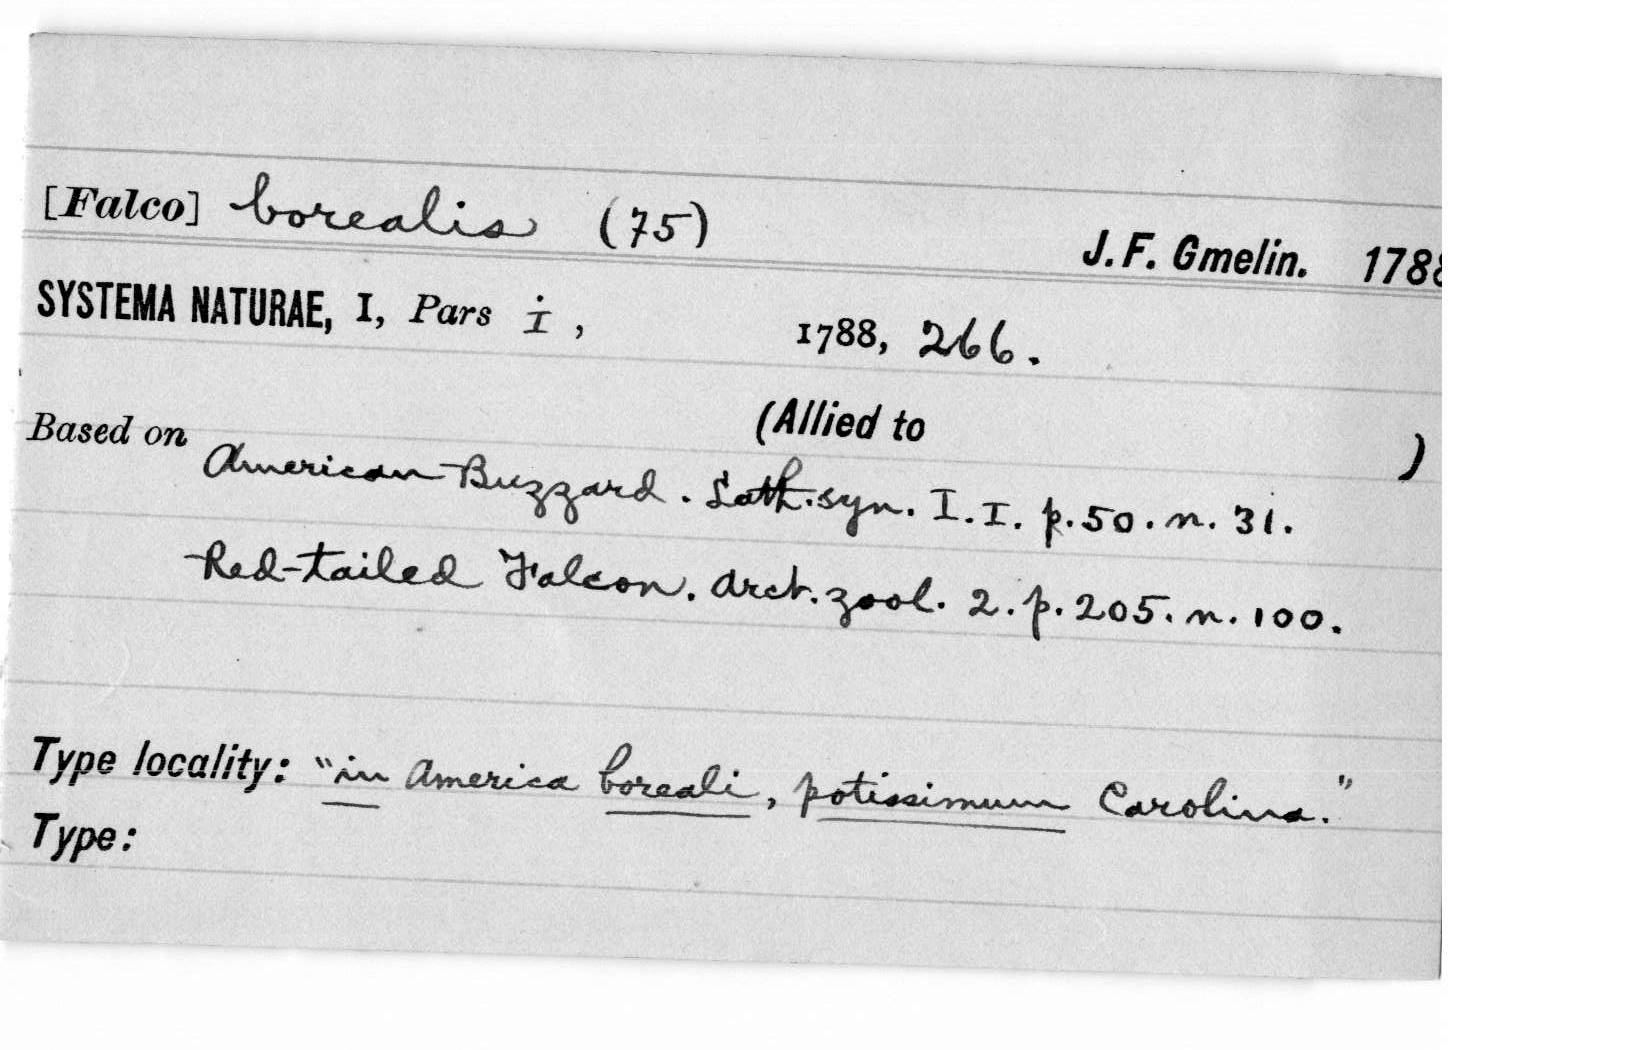 [Falco] borealis (75)
J. F. Gmelin. 1788
SYSTEMA NATURAE, I, Pars i, 1788, 266.
Based on (Allied to )
American Buzzard. Lath. syn. I. I. p. 50. n. 31.
Red-tailed Falcon. Arct. zool. 2. p. 205. n. 100.
Type locality: "in America boreali, potissimum Carolina."
Type: